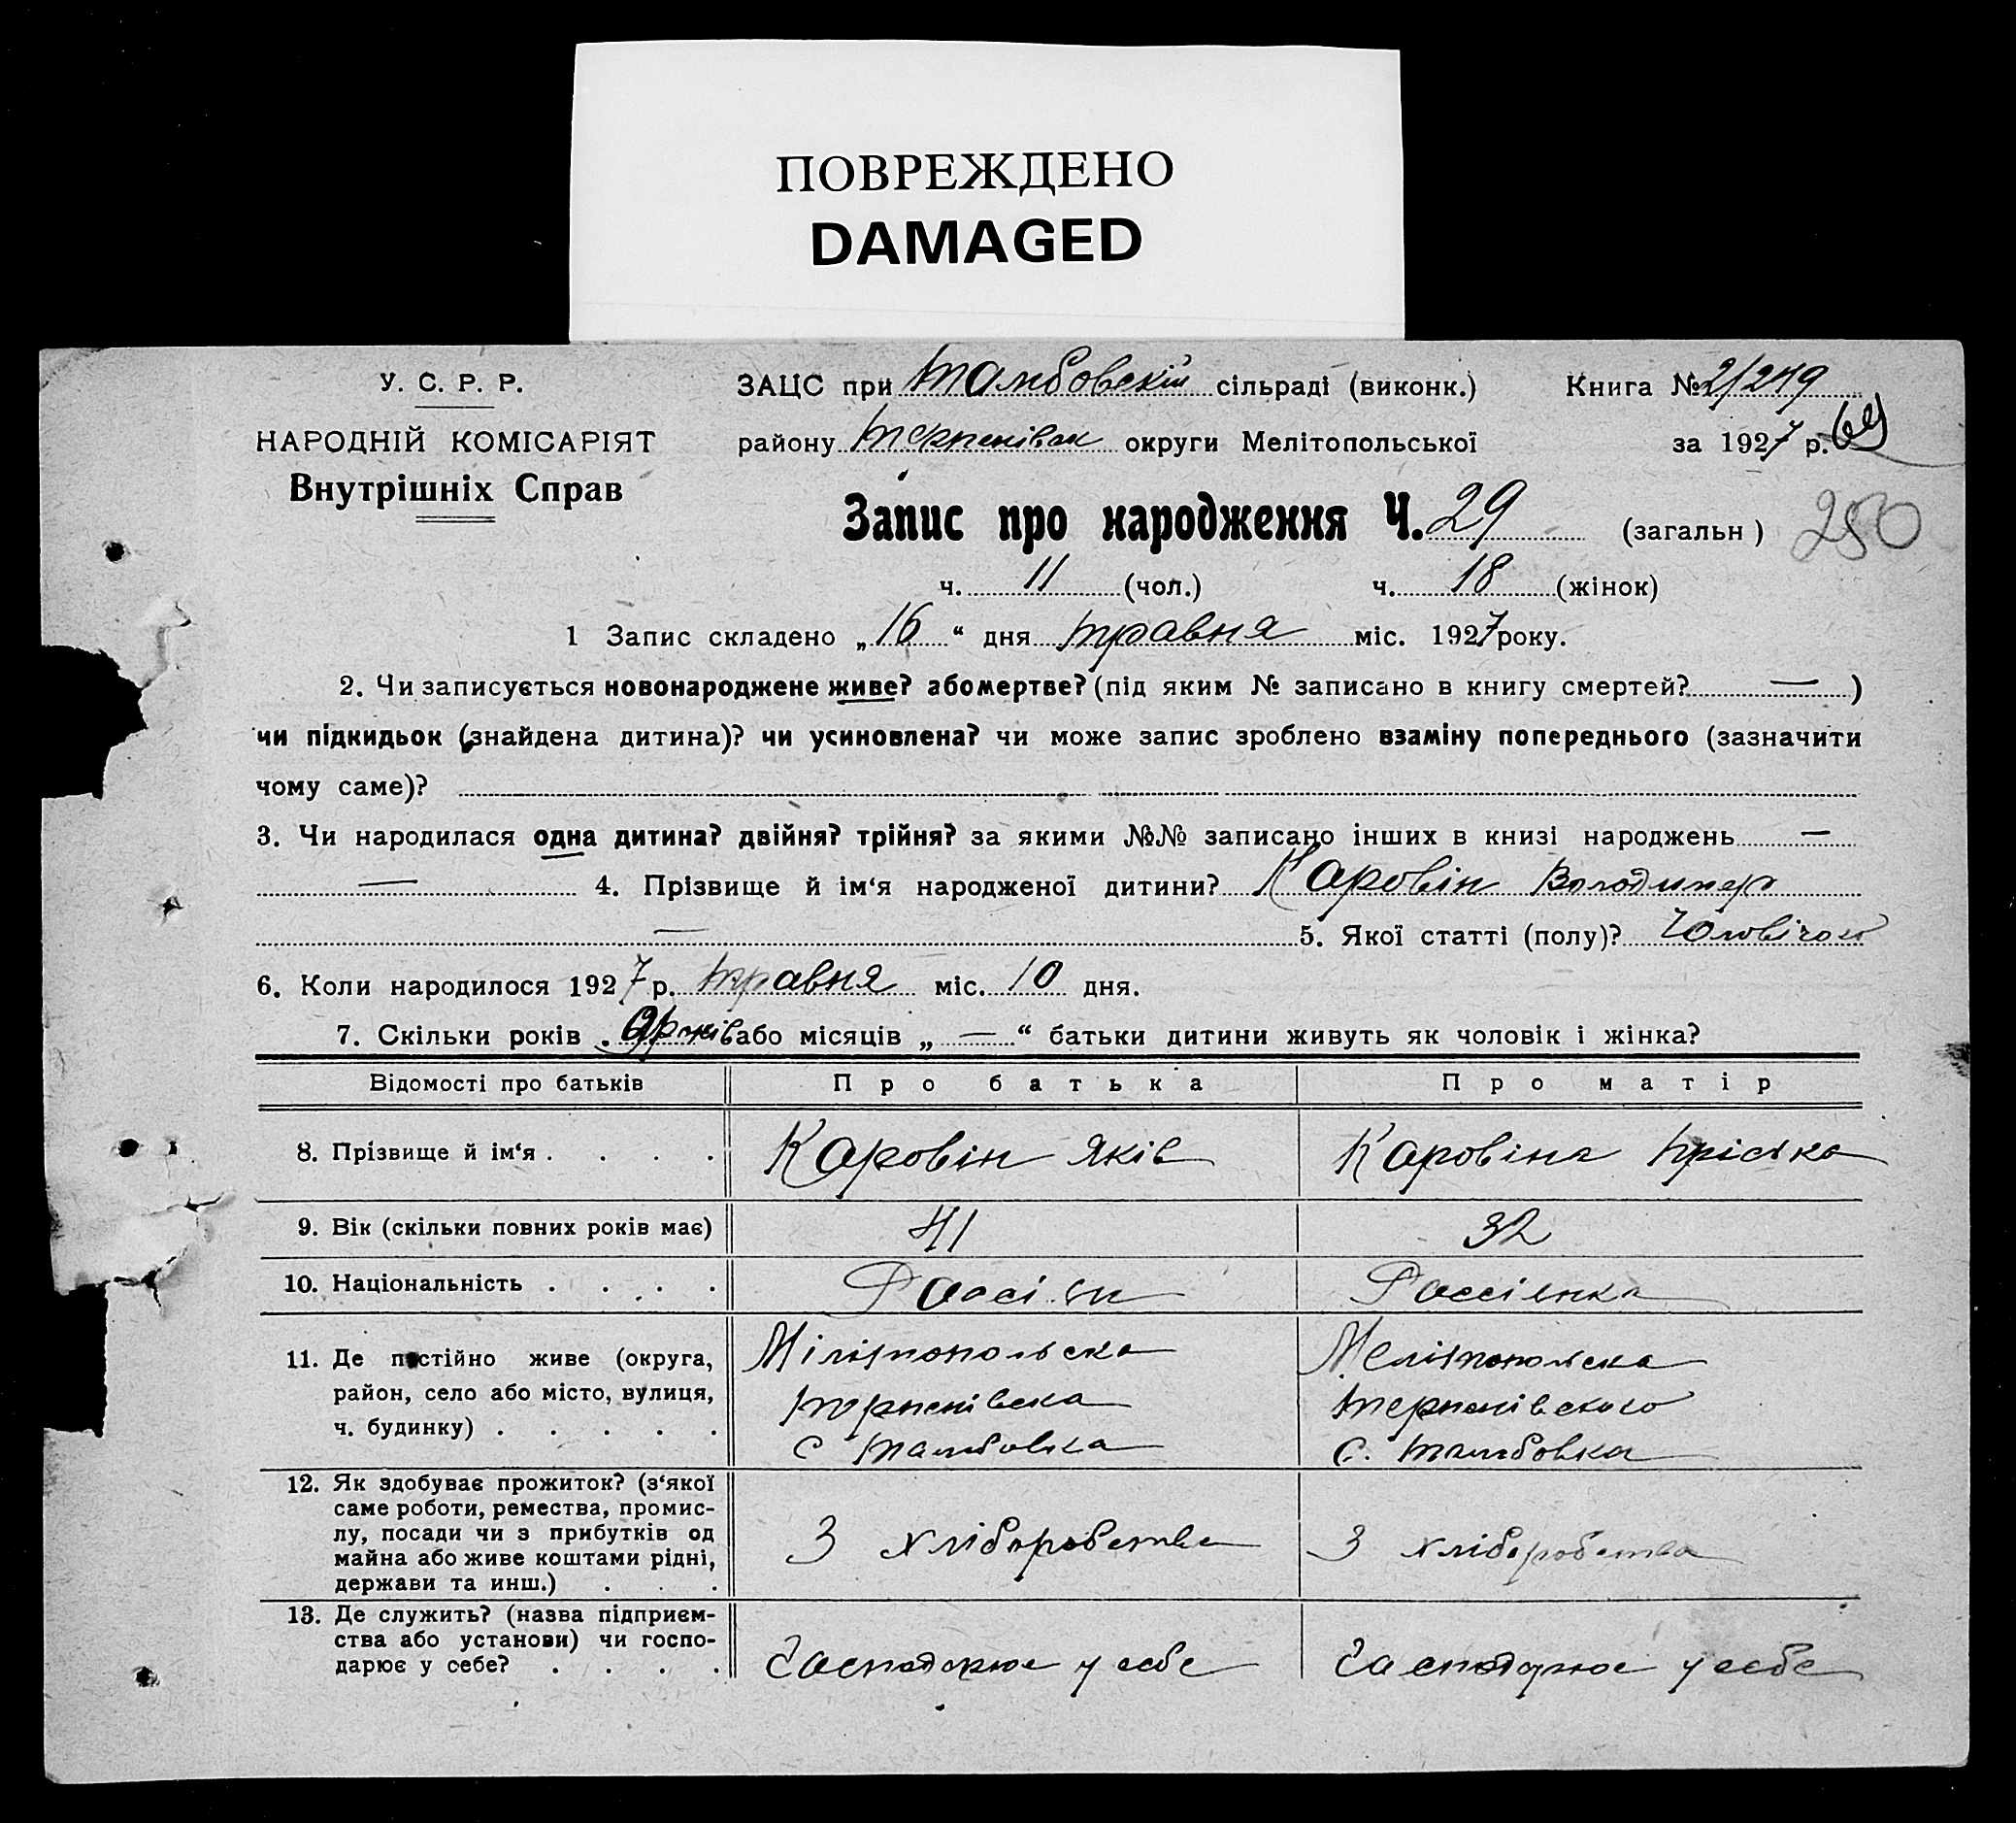 ПОВРЕЖДЕНО
DAMAGED
У. С. Р. Р.
НАРОДНІЙ КОМІСАРІЯТ
Внутрішніх Справ
ЗАЦС при Тамбовскій сільраді (виконк.) Книга № 2/249
району округи Мелітопольської за 1927 р. 69
Запис про народження Ч. 29 (загальн ) 250
ч. 11 (чол.) ч. 18 (жінок)
1 Запис складено „16“ дня травня міс. 1927 року.
2. Чи записується новонароджене живе? або мертве? (під яким № записано в книгу смертей? — )
чи підкидьок (знайдена дитина)? чи усиновлена? чи може запис зроблено взаміну попереднього (зазначити
чому саме)?
3. Чи народилася одна дитина? двійня? трійня? за якими №№ записано інших в книзі народжень —
— 4. Прізвище й ім‘я народженої дитини? Каровін Володимер
— 5. Якої статті (полу)?
6. Коли народилося 1927 р. травня міс. 10 дня.
7. Скільки років або місяців „ — “ батьки дитини живуть як чоловік і жінка?
Відомості про батьків Про батька Про матір
8. Прізвище й ім‘я . . . . Каровін Яків Каровіна Пріська
9. Вік (скільки повних років має) 41 32
10. Національність . . . . Россіянка
11. Де постійно живе (округа, Мілітопольска Мелітопольска
район, село або місто, вулиця, терпенівска терпенівского
ч. будинку) . . . . . с тамбовка с. тамбовка
12. Як здобуває прожиток? (з‘якої
саме роботи, ремества, промис-
лу, посади чи з прибутків од З хліборобства З хліборобства
майна або живе коштами рідні,
держави та инш.) . . .
13. Де служить? (назва підприєм-
ства або установи) чи госпо-
дарює у себе? . . . . Гасподарює у себе Гасподарює у себе